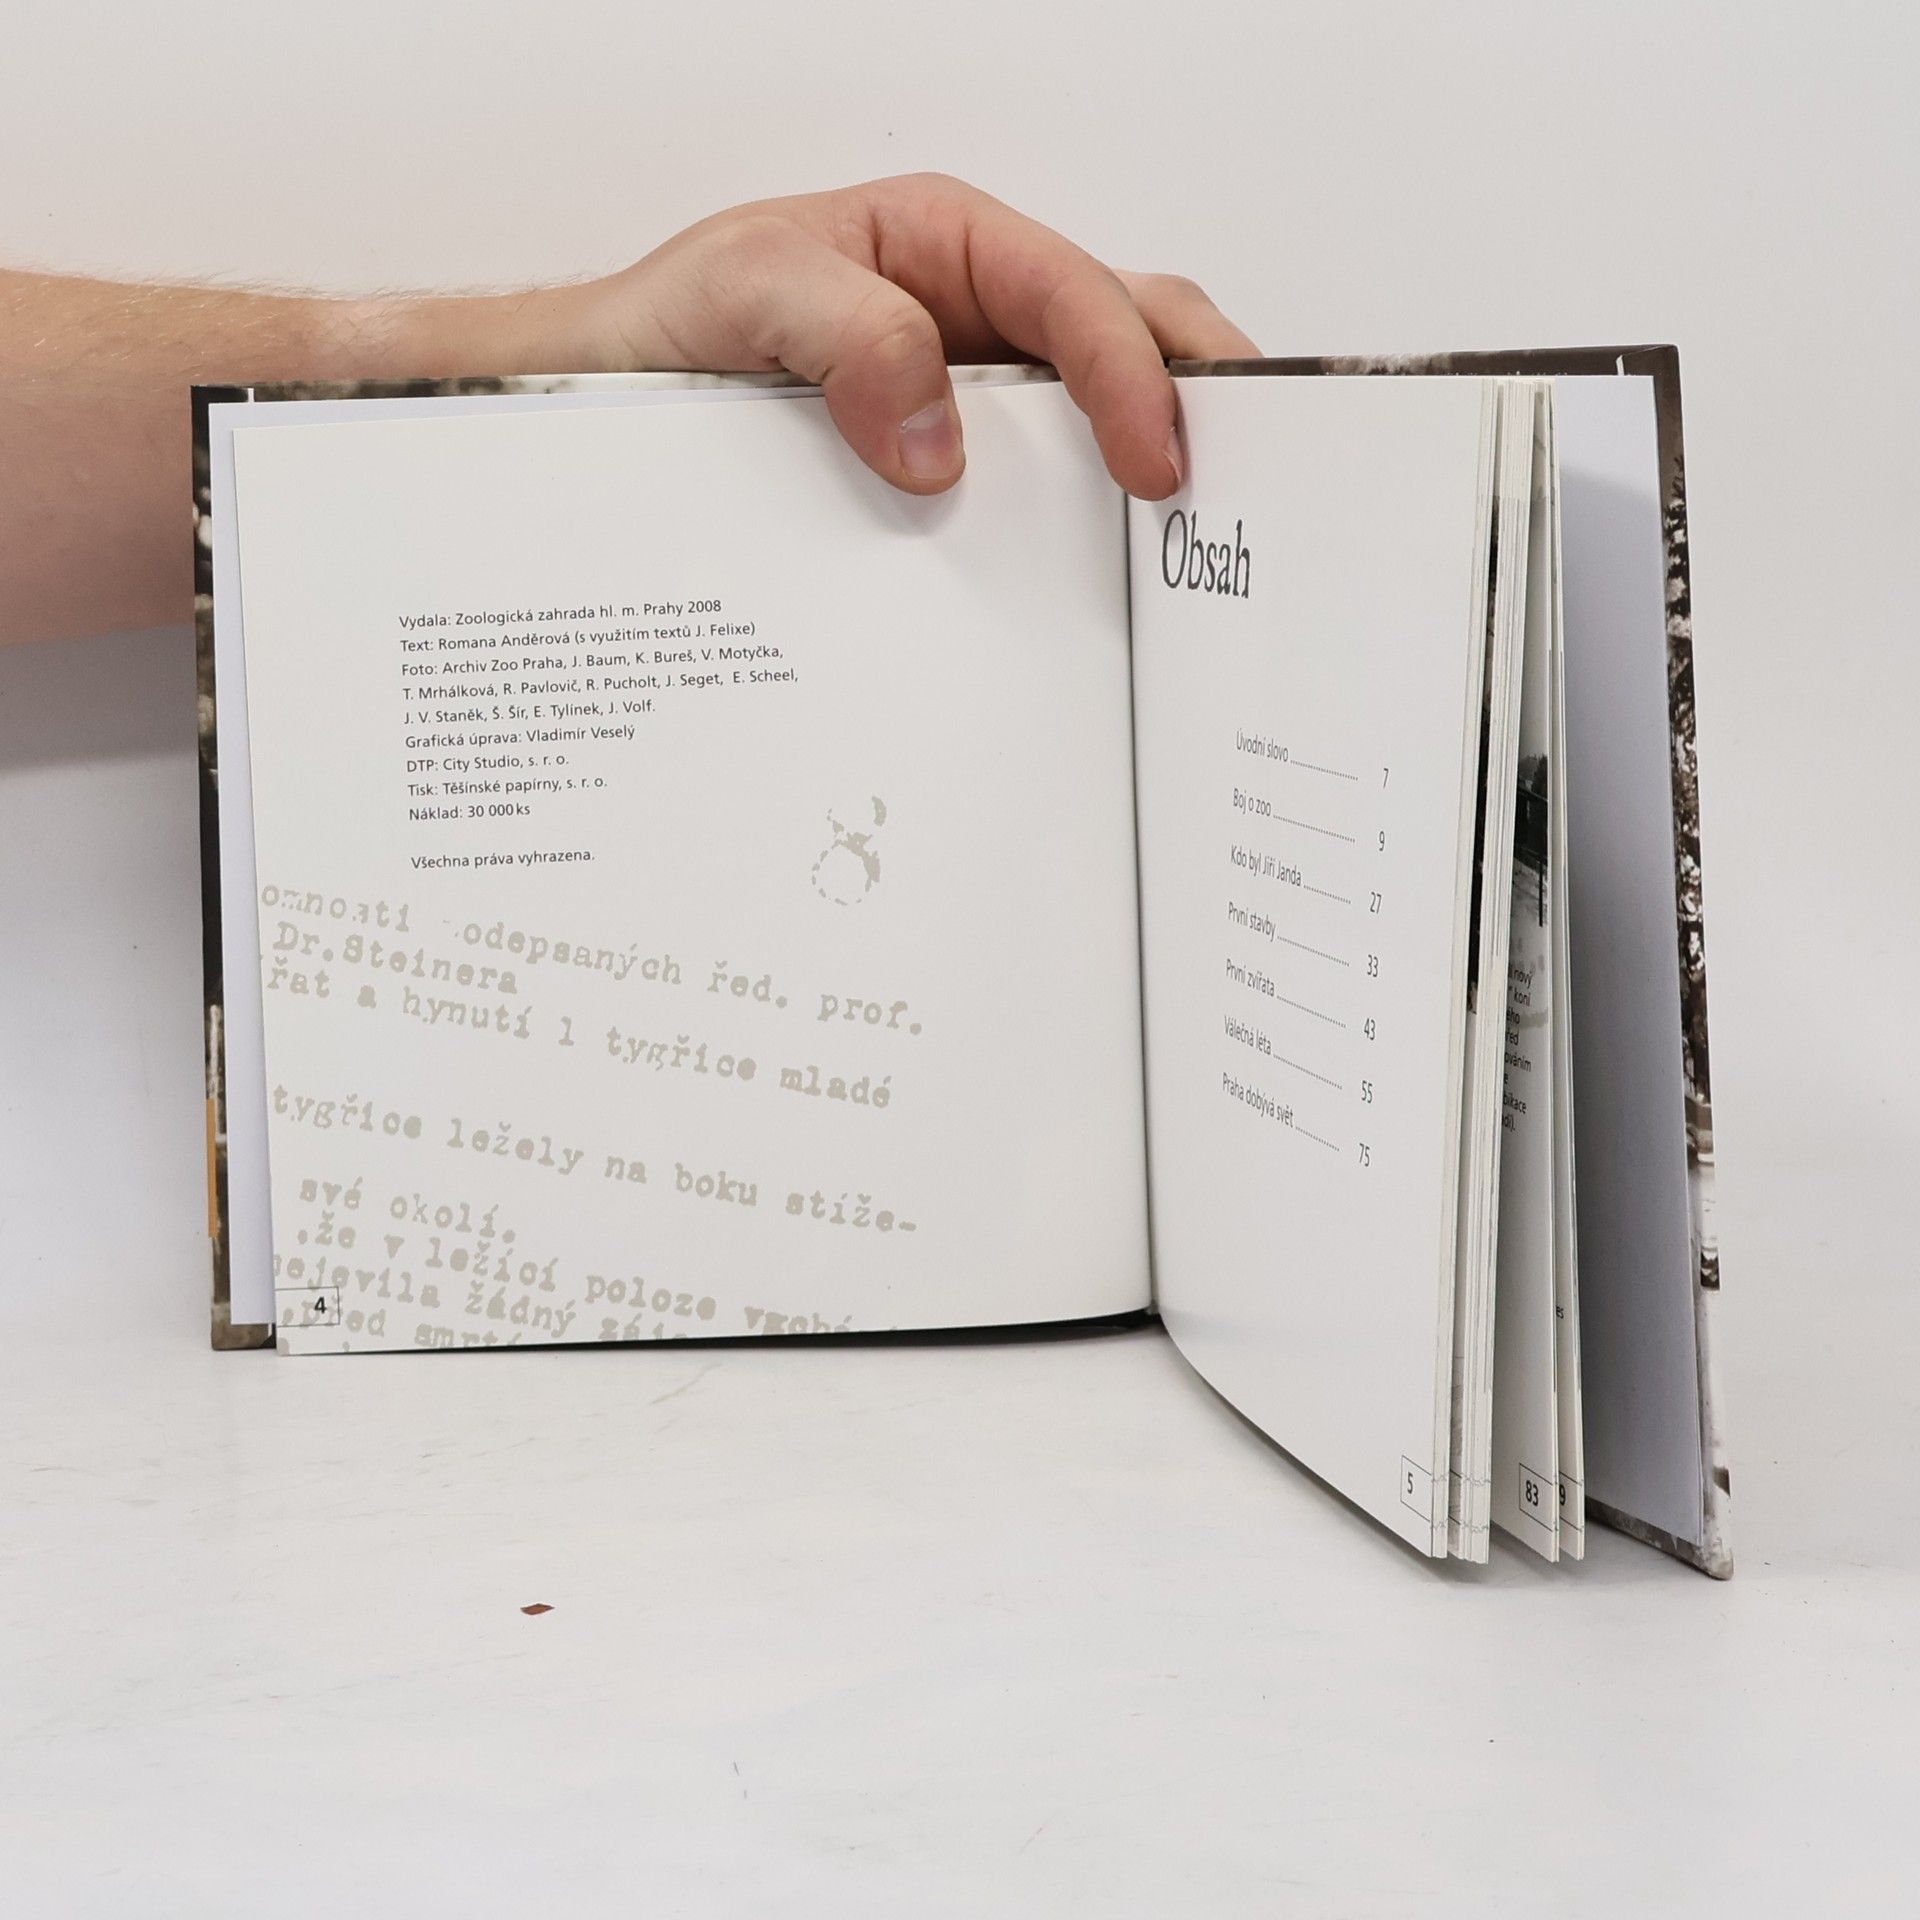 Vydala: Zoologická zahrada hl. m. Prahy 2008
Text: Romana Anděrová (s využitím textů J. Felixe)
Foto: Archiv Zoo Praha, J. Baum, K. Bureš, V. Motyčka,
T. Mrhálková, R. Pavlovič, R. Pucholt, J. Seget, E. Scheel,
J. V. Staněk, Š. Šír, E. Tylínek, J. Volf.
Grafická úprava: Vladimír Veselý
DTP: City Studio, s. r. o.
Tisk: Těšínské papírny, s. r. o.
Náklad: 30 000 ks
Všechna práva vyhrazena.
odepsaných řed. prof.
Dr. Steinera
řat a hynutí 1 tygřice mladé
tygřice ležely na boku stíže-
své okolí.
,že v ležící poloze
nejevila žádný
před
4
Obsah
Úvodní slovo .................... 7
Boj o zoo ........................ 9
Kdo byl Jiří Janda .............. 27
První stavby ..................... 33
První zvířata .................... 43
Válečná léta ..................... 55
Praha dobývá svět .............. 75
5
nový
koní
83
9